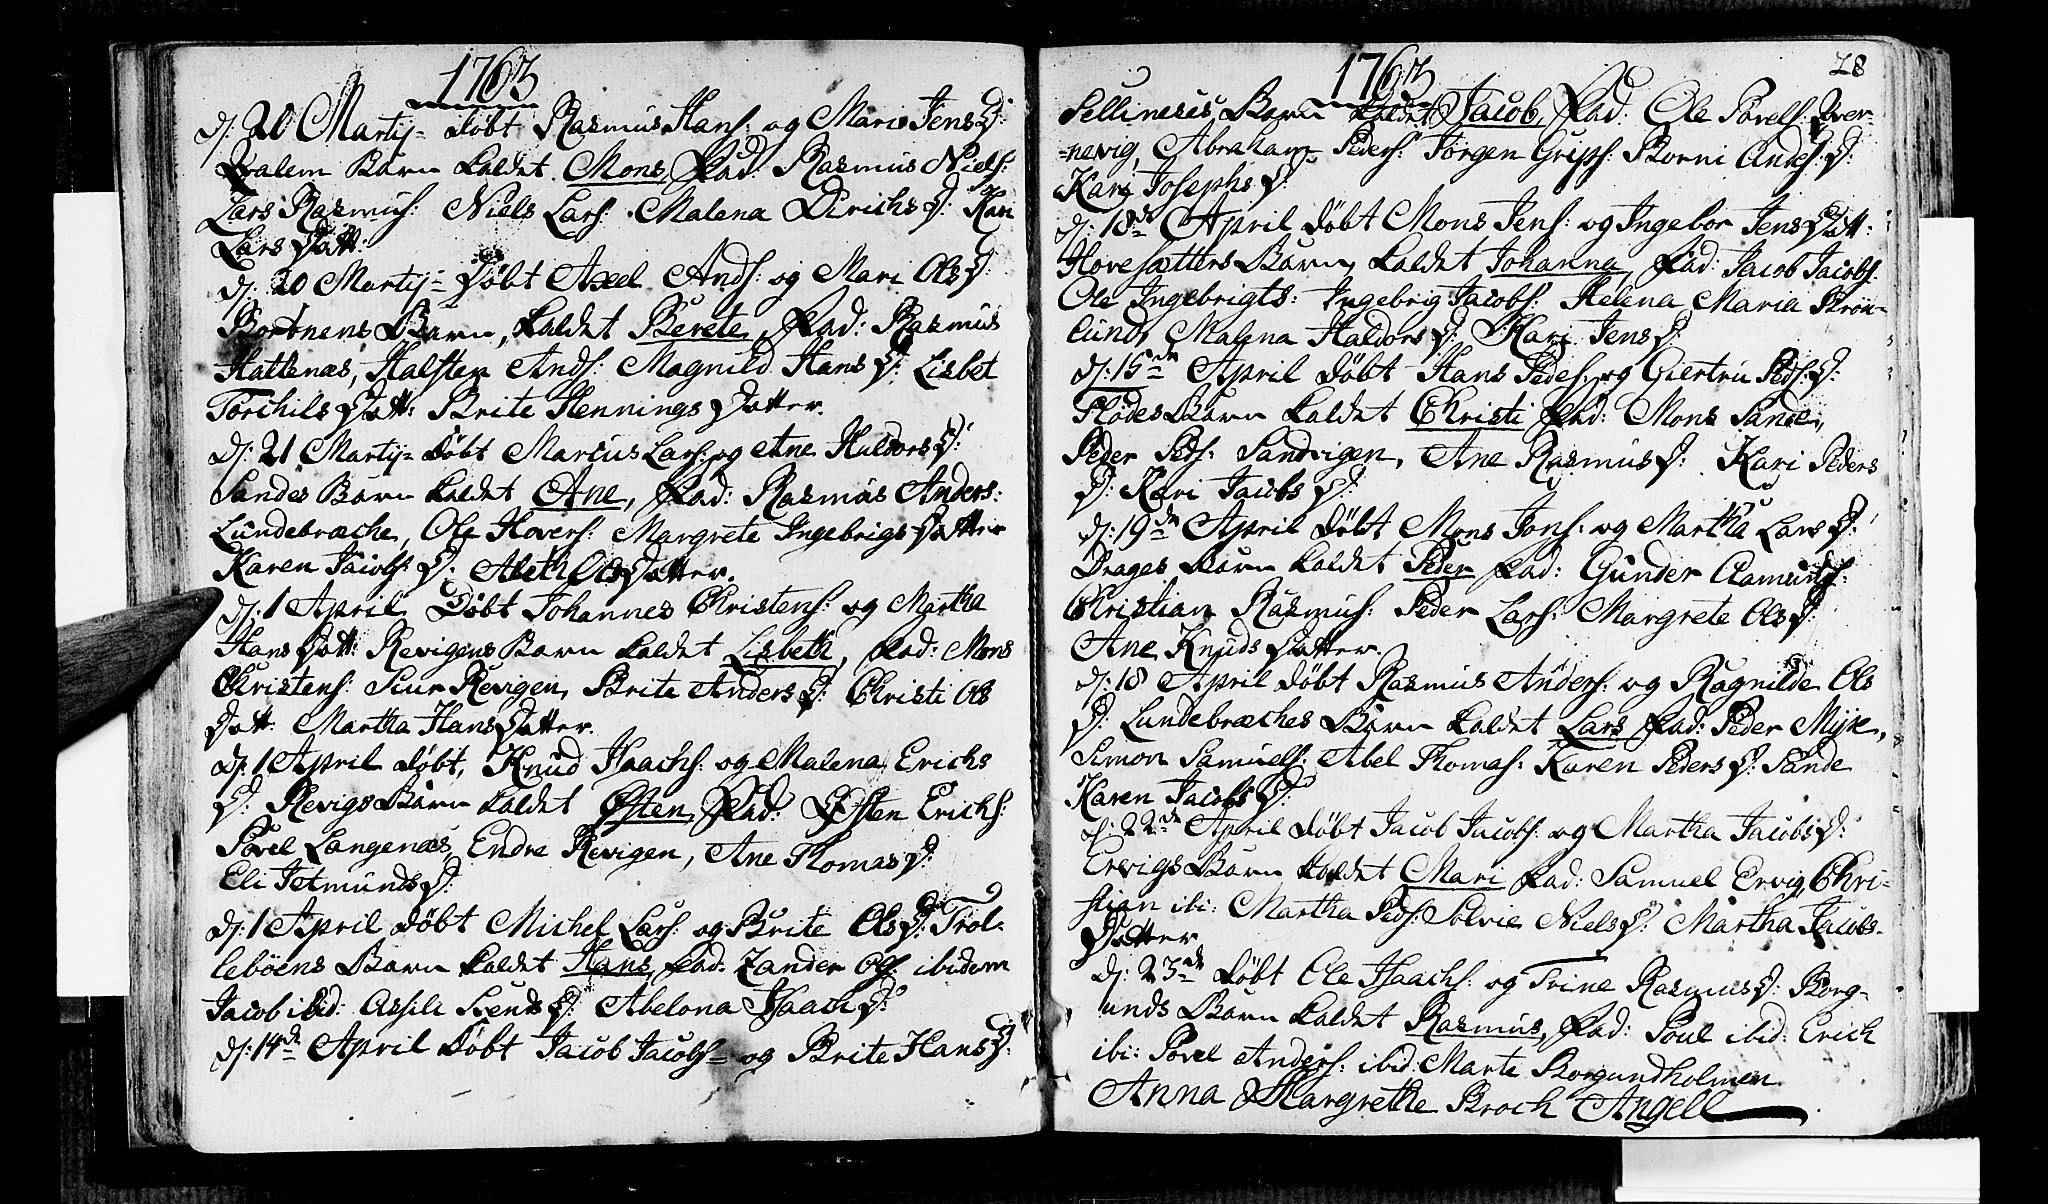 1763
d: 20 Martij døbt Rasmus Hans: og Mari Jens D:
Qvalem Barn kaldet Mons, Fad: Rasmus Niels:
Lars Rasmus: Niels Lars: Malena Dirichs D: Kari
Lars Datt:
d: 20 Martij døbt Axel Ands: og Mari Ols D:
Bortnens Barn, kaldet Berete, Fad: Rasmus
Hattenæs, Halsten Ands: Magnild Hans D: Lisbet
Torchils Datt: Brite Hennings Datter.
d: 21 Martij døbt Marcus Lars: og Ane Haldors D:
Sandes Barn kaldet Ane, Fad: Rasmus Anders:
Lundebræche, Ole Hovers: Margrete Ingebrigs Datter
Karen Jacobs: D: Aleth Ols Datter.
d: 1 April Døbt Johannes Christens: og Martha
Hans Datt: Revigens Barn kaldet Lisbeth, Fad: Mons
Christens: Siur Revigen, Brite Anders D: Christi Ols
Datt: Martha Hans Datter.
d: 1 April døbt, Knud Isachs: og Malena Erichs
D: Revigs Barn kaldet Østen, Fad: Østen Erichs:
Povel Langenæs, Endre Revigen, Ane Thomas D:
Eli Jetmunds D:
d: 1 April døbt Michel Lars: og Brite Ols D: Trol-
lebøens Barn kaldet Hans, Fad: Zander Ols: ibidem
Jacob ibid: Assili Sends D: Abelona Isach D:
d: 14de April døbt Jacob Jacobs= og Brite Hans D:
1763
78
Sellinesis, Barn kaldet Jacob, Fad: Ole Povels: Sver-
=nevig, Abraham Peders: Jørgen Grips: Borni Andes: D:
Kari Josephs D:
d: 18de April døbt Mons Jens: og Ingebor Jens Datt:
Hovesætters Barn, kaldet Johanna, Fad: Jacob Jacobs:
Ole Ingebrigts: Ingebrig Jacobs: Helena Maria Brøn-
lund, Malena Haldors D: Kari Jens D:
d: 15de April døbt Hans Peders: og Giertru Peds: D:
Flødes Barn kaldet Christi Fad: Mons Sande,
Peder Peds: Sandvigen, Ane Rasmus D: Kari Peders
D: Kari Jacobs D:
d: 19de April døbt Mons Jons: og Martha Lars D:
Drages Barn kaldet Peder Fad: Gunder Aamunds:
Christian Rasmus: Peder Lars: Margrete Ols D:
Ane Knuds Datter.
d: 18 April døbt Rasmus Anders: og Ragnilde Ols
D: Lundebræches Barn kaldet Lars Fad: Peder Myre,
Simon Samuels: Abel Thomas: Karen Peders D: Sande
Karen Jacobs D:
d: 22de April døbt Jacob Jacobs: og Martha Jacobs D:
Ervigs Barn kaldet Mari Fad: Samuel Ervig, Chri-
stian ibi: Martha Peds: Solvie Niels D: Martha Jacobs-
Datter
d: 23de døbt Ole Isachs: og Trine Rasmus D: Borg-
unds Barn kaldet Rasmus, Fad: Poul ibid: Erich
ibi: Povel Anders: ibid: Marte Borgundholmen
Anna Margrethe Broch Angell